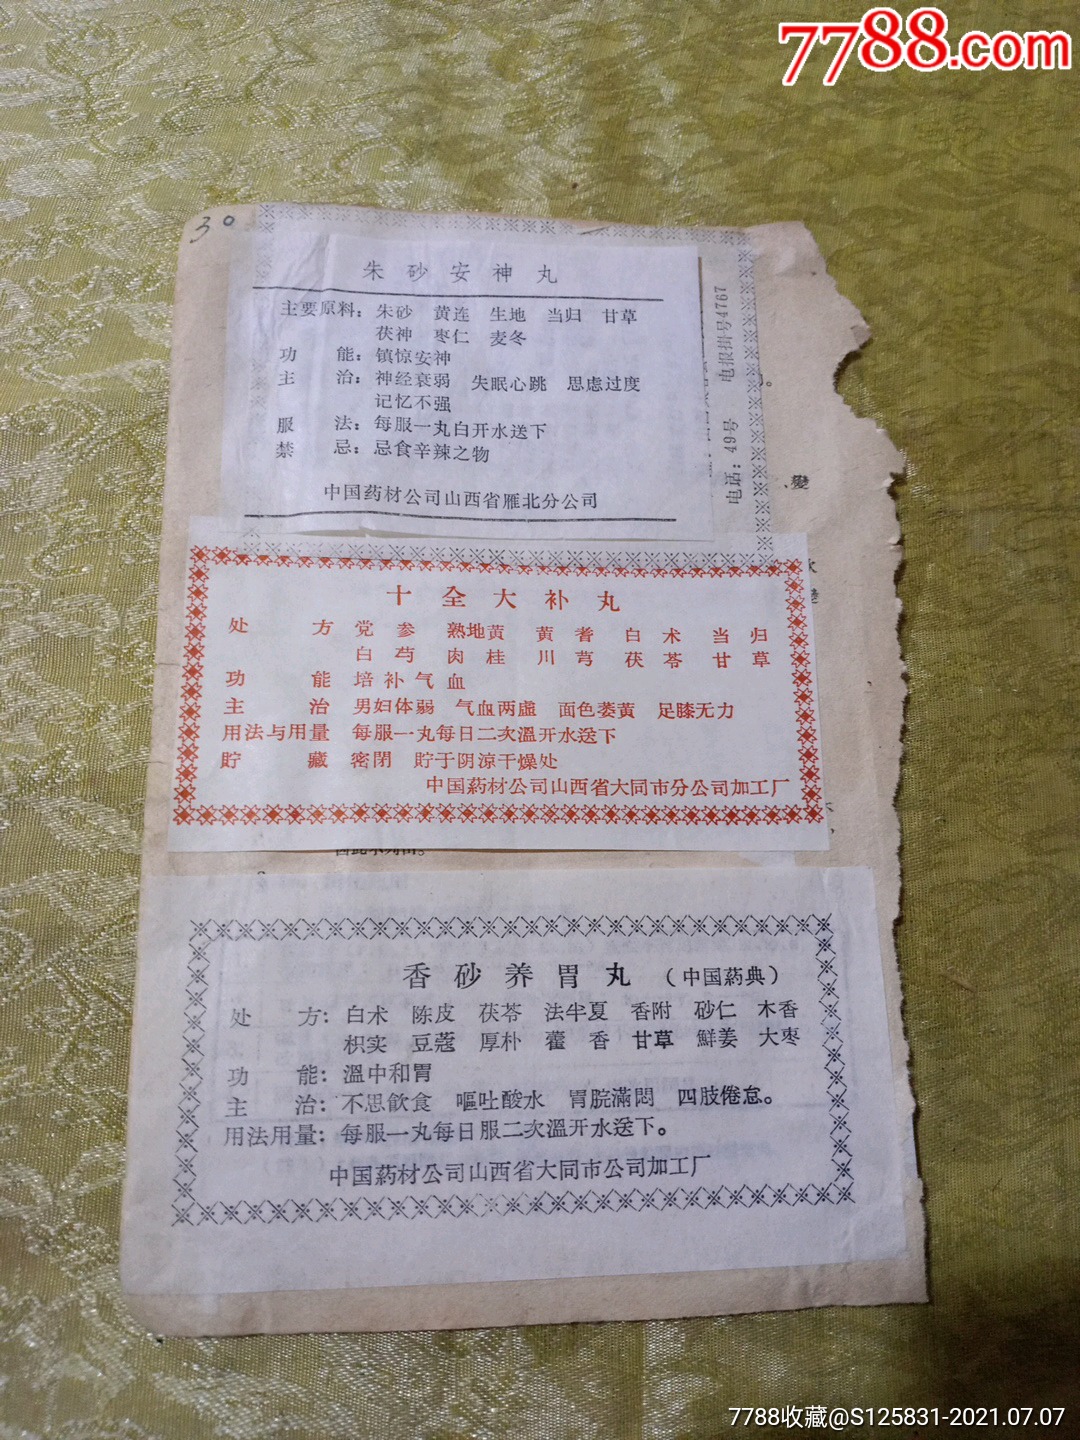 7788.com
30
朱砂安神丸
主要原料：朱砂 黄连 生地 当归 甘草
茯神 枣仁 麦冬
功 能：镇惊安神
主 治：神经衰弱 失眠心跳 思虑过度
记忆不强
服 法：每服一丸白开水送下
禁 忌：忌食辛辣之物
中国药材公司山西省雁北分公司
电话：49号 电报挂号4767
變
十全大补丸
处 方 党参 熟地黄 黄耆 白术 当归
白芍 肉桂 川芎 茯苓 甘草
功 能 培补气血
主 治 男妇体弱 气血两虚 面色萎黄 足膝无力
用法与用量 每服一丸每日二次溫开水送下
貯 藏 密閉 貯于阴涼干燥处
中国葯材公司山西省大同市分公司加工厂
香砂养胃丸（中国葯典）
处 方：白术 陈皮 茯苓 法半夏 香附 砂仁 木香
枳实 豆蔻 厚朴 藿香 甘草 鮮姜 大枣
功 能：溫中和胃
主 治：不思飲食 嘔吐酸水 胃脘滿悶 四肢倦怠。
用法用量：每服一丸每日服二次溫开水送下。
中国葯材公司山西省大同市公司加工厂
7788收藏@S125831-2021.07.07